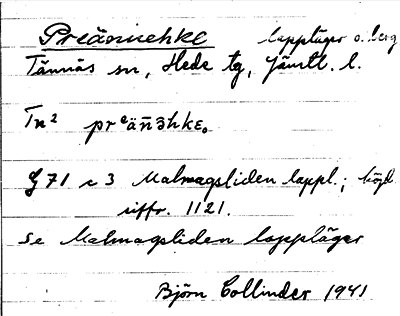 Preänuehke lappläger o. berg
Tännäs sn, Hede tg, Jämtl. l.
Tn² prᵉäñӡhkɛ.
G 71 c 3 Malmagsliden lappl.; höjd
siffr. 1121.
Se Malmagsliden lappläger
Björn Collinder 1941